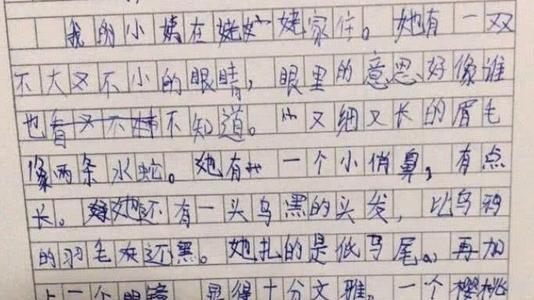 我的小姨在姥姥家住。她有一双
不大又不小的眼睛，眼里的意思好像谁
也不知道。又细又长的眉毛
像两条水蛇。她有一个小俏鼻，有点
长。她还有一头乌黑的头发，比乌鸦
的羽毛还黑。她扎的是低马尾。再加
上一个眼镜，显得十分文雅。一个樱桃